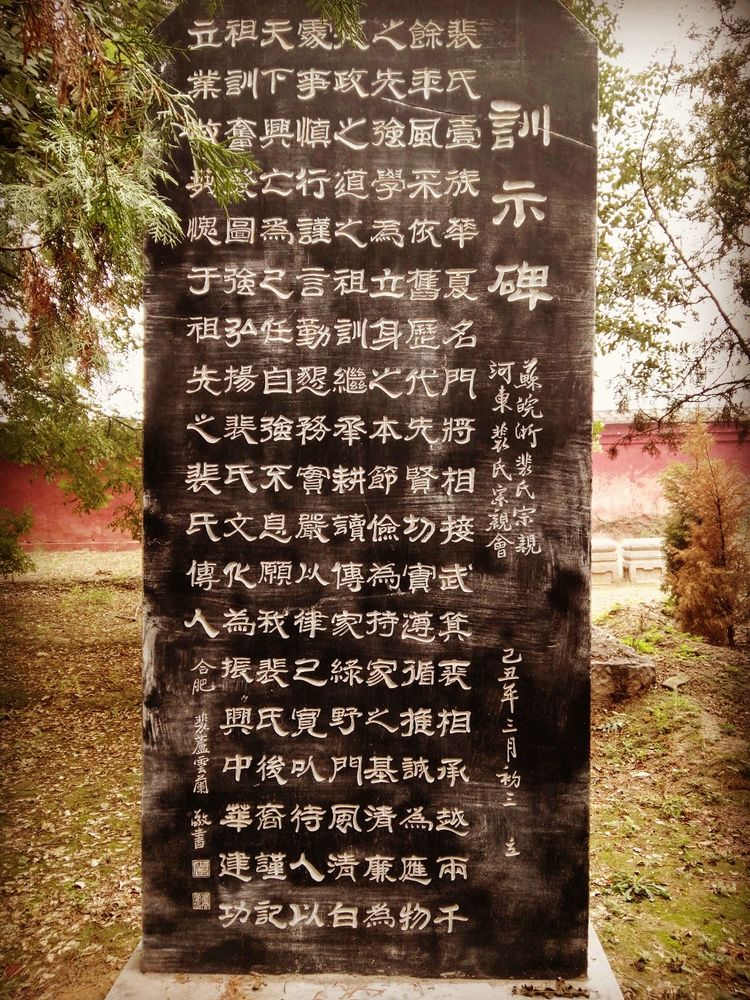 訓示碑
蘇皖浙裴氏宗親
河東裴氏宗親會
己丑年三月初三 立
裴氏壹族華夏名門將相接武箕裘相承越兩千
餘年風采依舊歷代先賢功實遵循推誠為應物
之先強學為立身之本節儉為持家之基清廉為
政之道之祖訓繼承耕讀傳家綠野門風清白
處事慎行謹言勤懇務實嚴以律己寬以待人以
天下興亡為己任自強不息願我裴氏後裔謹記
祖訓奮發圖強弘揚裴氏文化為振興中華建功
立業做無愧于祖先之裴氏傳人
合肥 裴蘆雲蘭 敬書